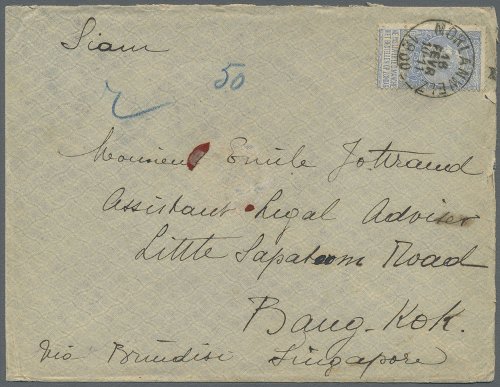 Siam
50
MORLANWELZ
16
FEVR
1900
Monsieur Emile Jottrand
Assistant Legal Adviser
Little Sapatoom Road
Bang-Kok.
Via Brindisi Singapore